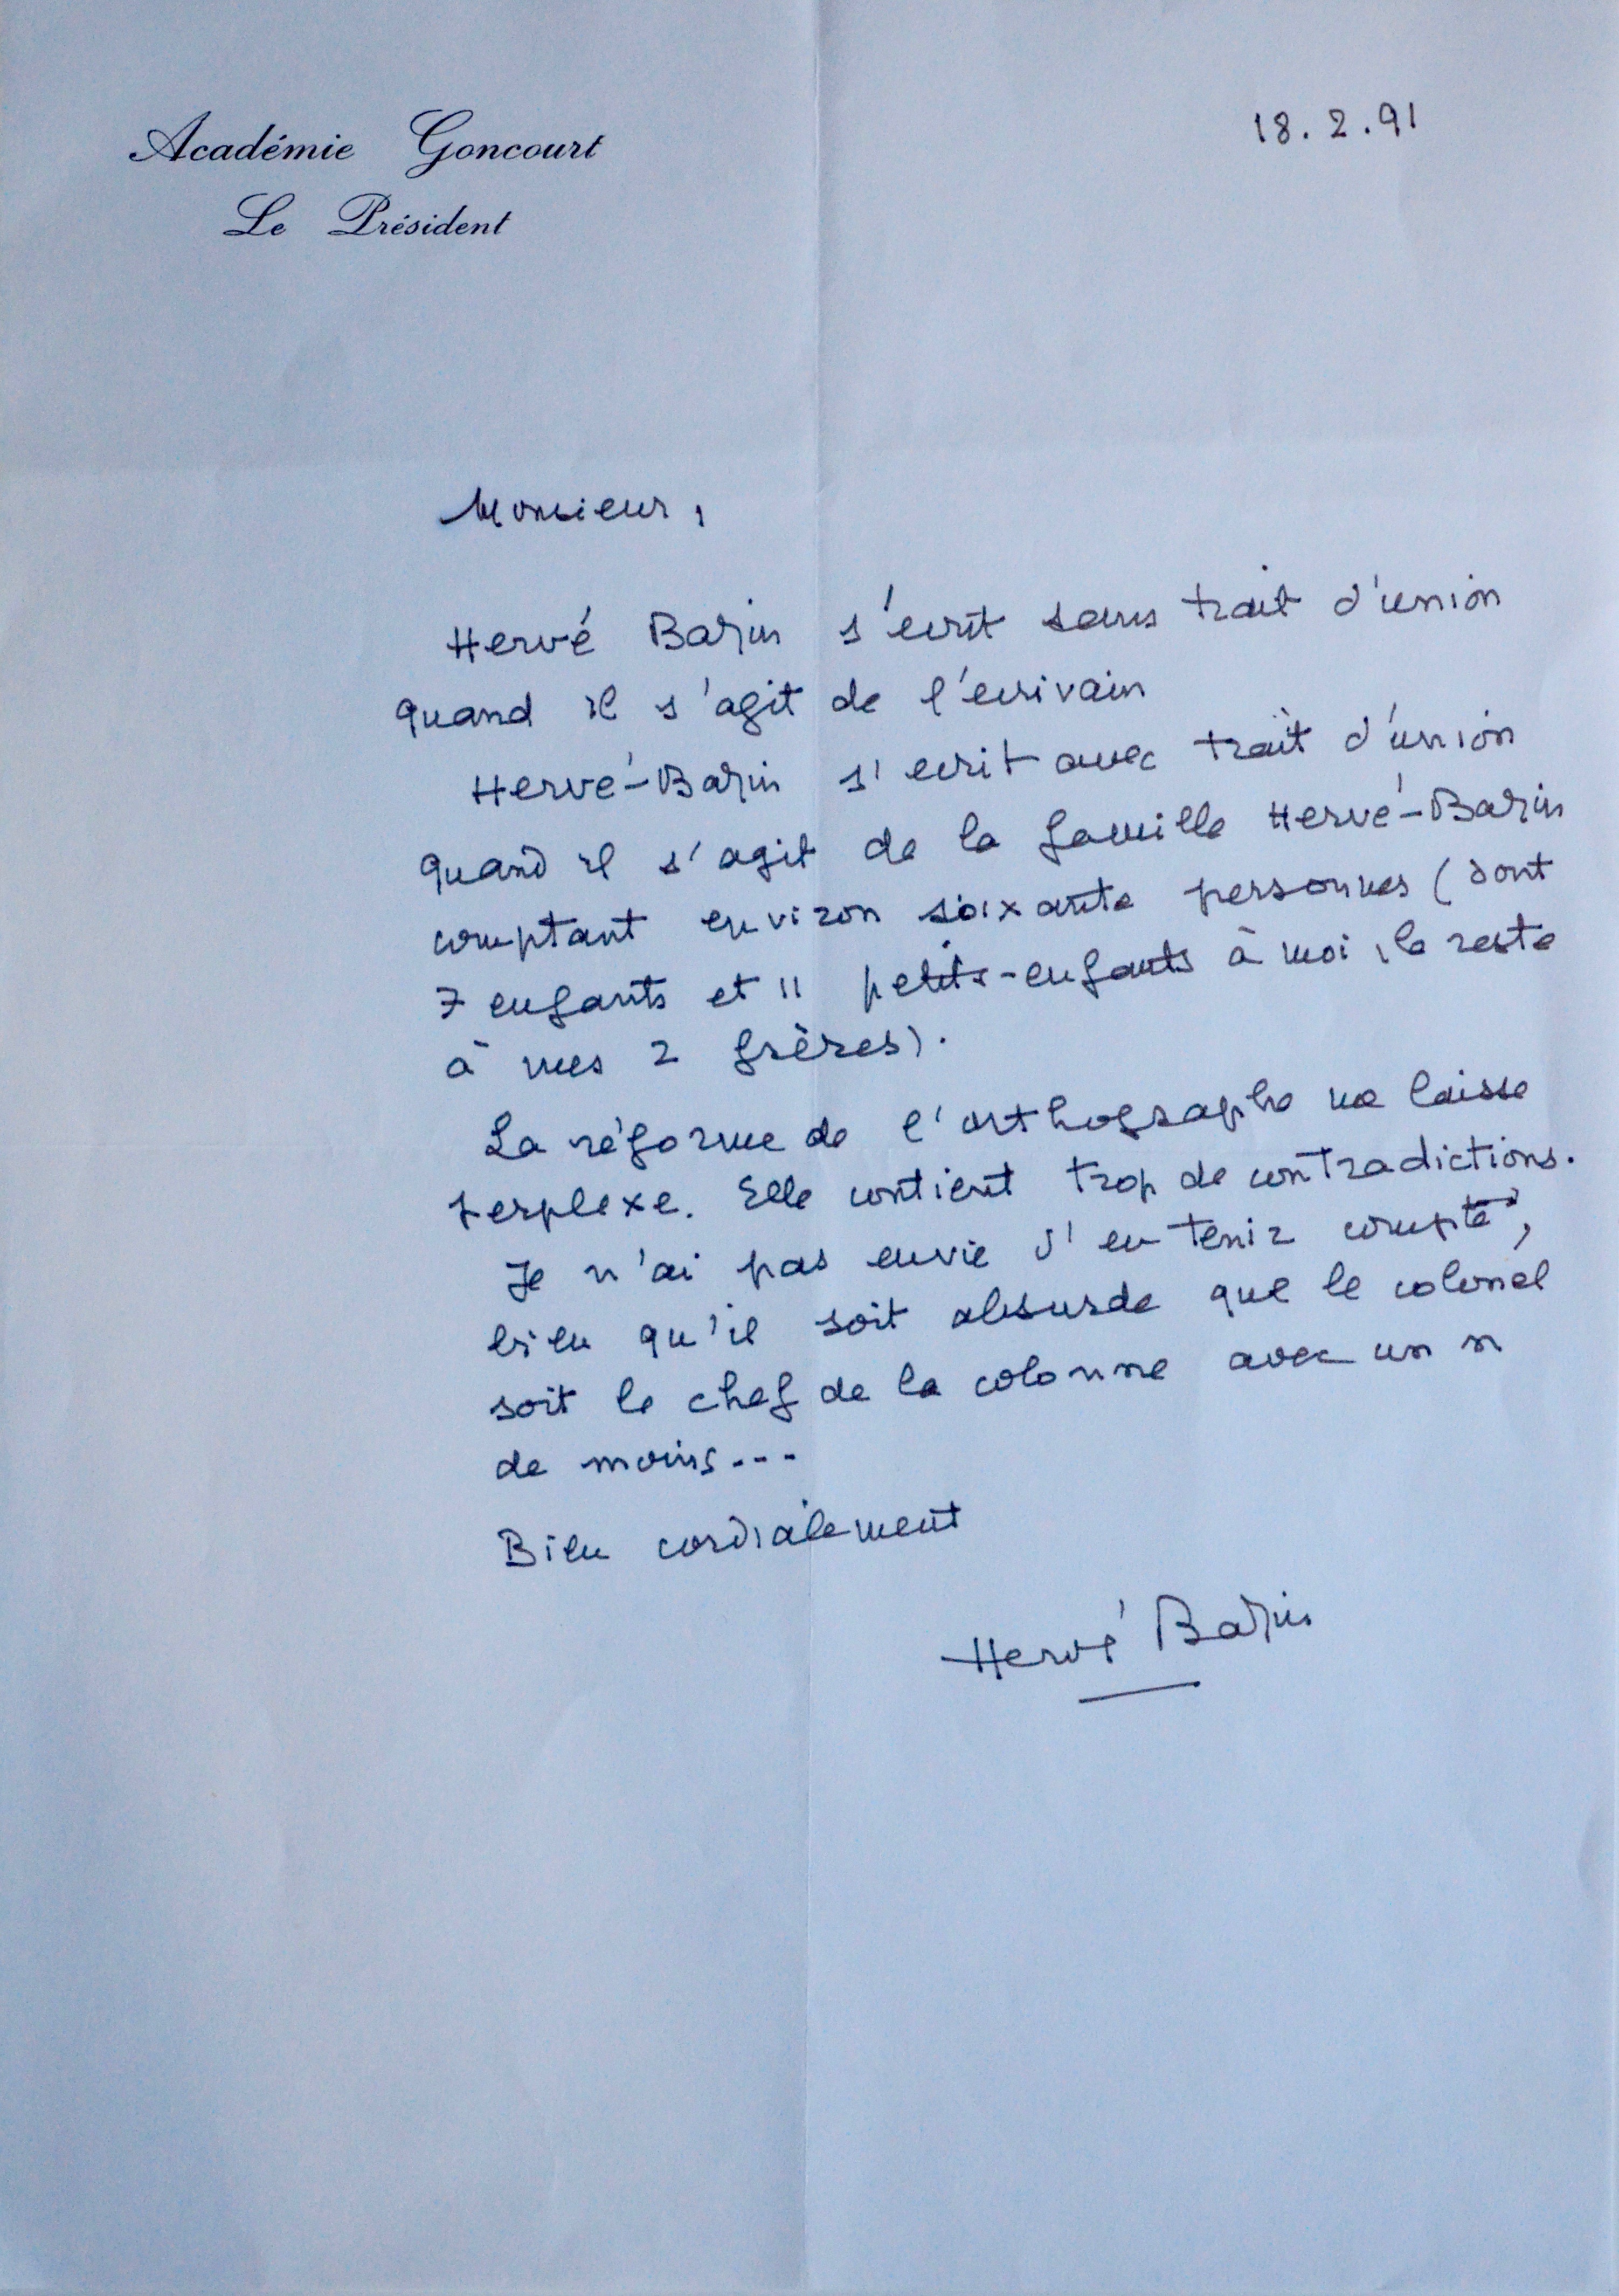 Académie Goncourt
Le Président
18.2.91
Monsieur,
Hervé Bazin s'écrit sans trait d'union
quand il s'agit de l'écrivain
Hervé-Bazin s'écrit avec trait d'union
quand il s'agit de la famille Hervé-Bazin
comptant environ soixante personnes (dont
7 enfants et 11 petits-enfants à moi, le reste
à mes 2 frères).
La réforme de l'orthographe me laisse
perplexe. Elle contient trop de contradictions.
Je n'ai pas envie d'en tenir compte,
bien qu'il soit absurde que le colonel
soit le chef de la colonne avec un n
de moins...
Bien cordialement
Hervé Bazin